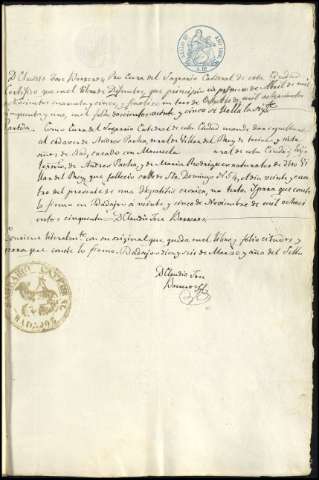 D. Claudio Jose Barrero, Pro Cura del Sagrario Catedral de esta Ciudad
Certifico que en el libro de Difuntos, que principió en primero de Abril de mil
ochocientos cuarenta y cinco, y finalizó en tres de Octubre de mil ochocientos
cincuenta y uno, en el folio doscientos y cinco se halla la sigte
Partida. Como Cura del Sagrario Catedral de esta Ciudad mandé dar sepultura
al cadaver de Andres Pacha, natural de Villar del Rey, de treinta y
nueve de edad, casado con Manuela natural de esta Ciudad, hijo
legítimo, de Andres Pacha, y de Maria Rodriguez naturales de dho Vi
llar del Rey, que falleció calle de Sto. Domingo N. 54, a dia veinte y cua
tro del presente de una Hepatitis cronica, no testó. Y para que conste
lo firmo en Badajoz á veinte, y cinco de Noviembre de mil ochoci
entos cincuenta. D. Claudio Jose Barrero.
Conviene literalmte con su original que queda en el libro, y folio citados y
para que conste lo firmo. Badajoz diez y seis de Marzo y año del Sello
D. Claudio Jose
Barrero
BADAJOZ